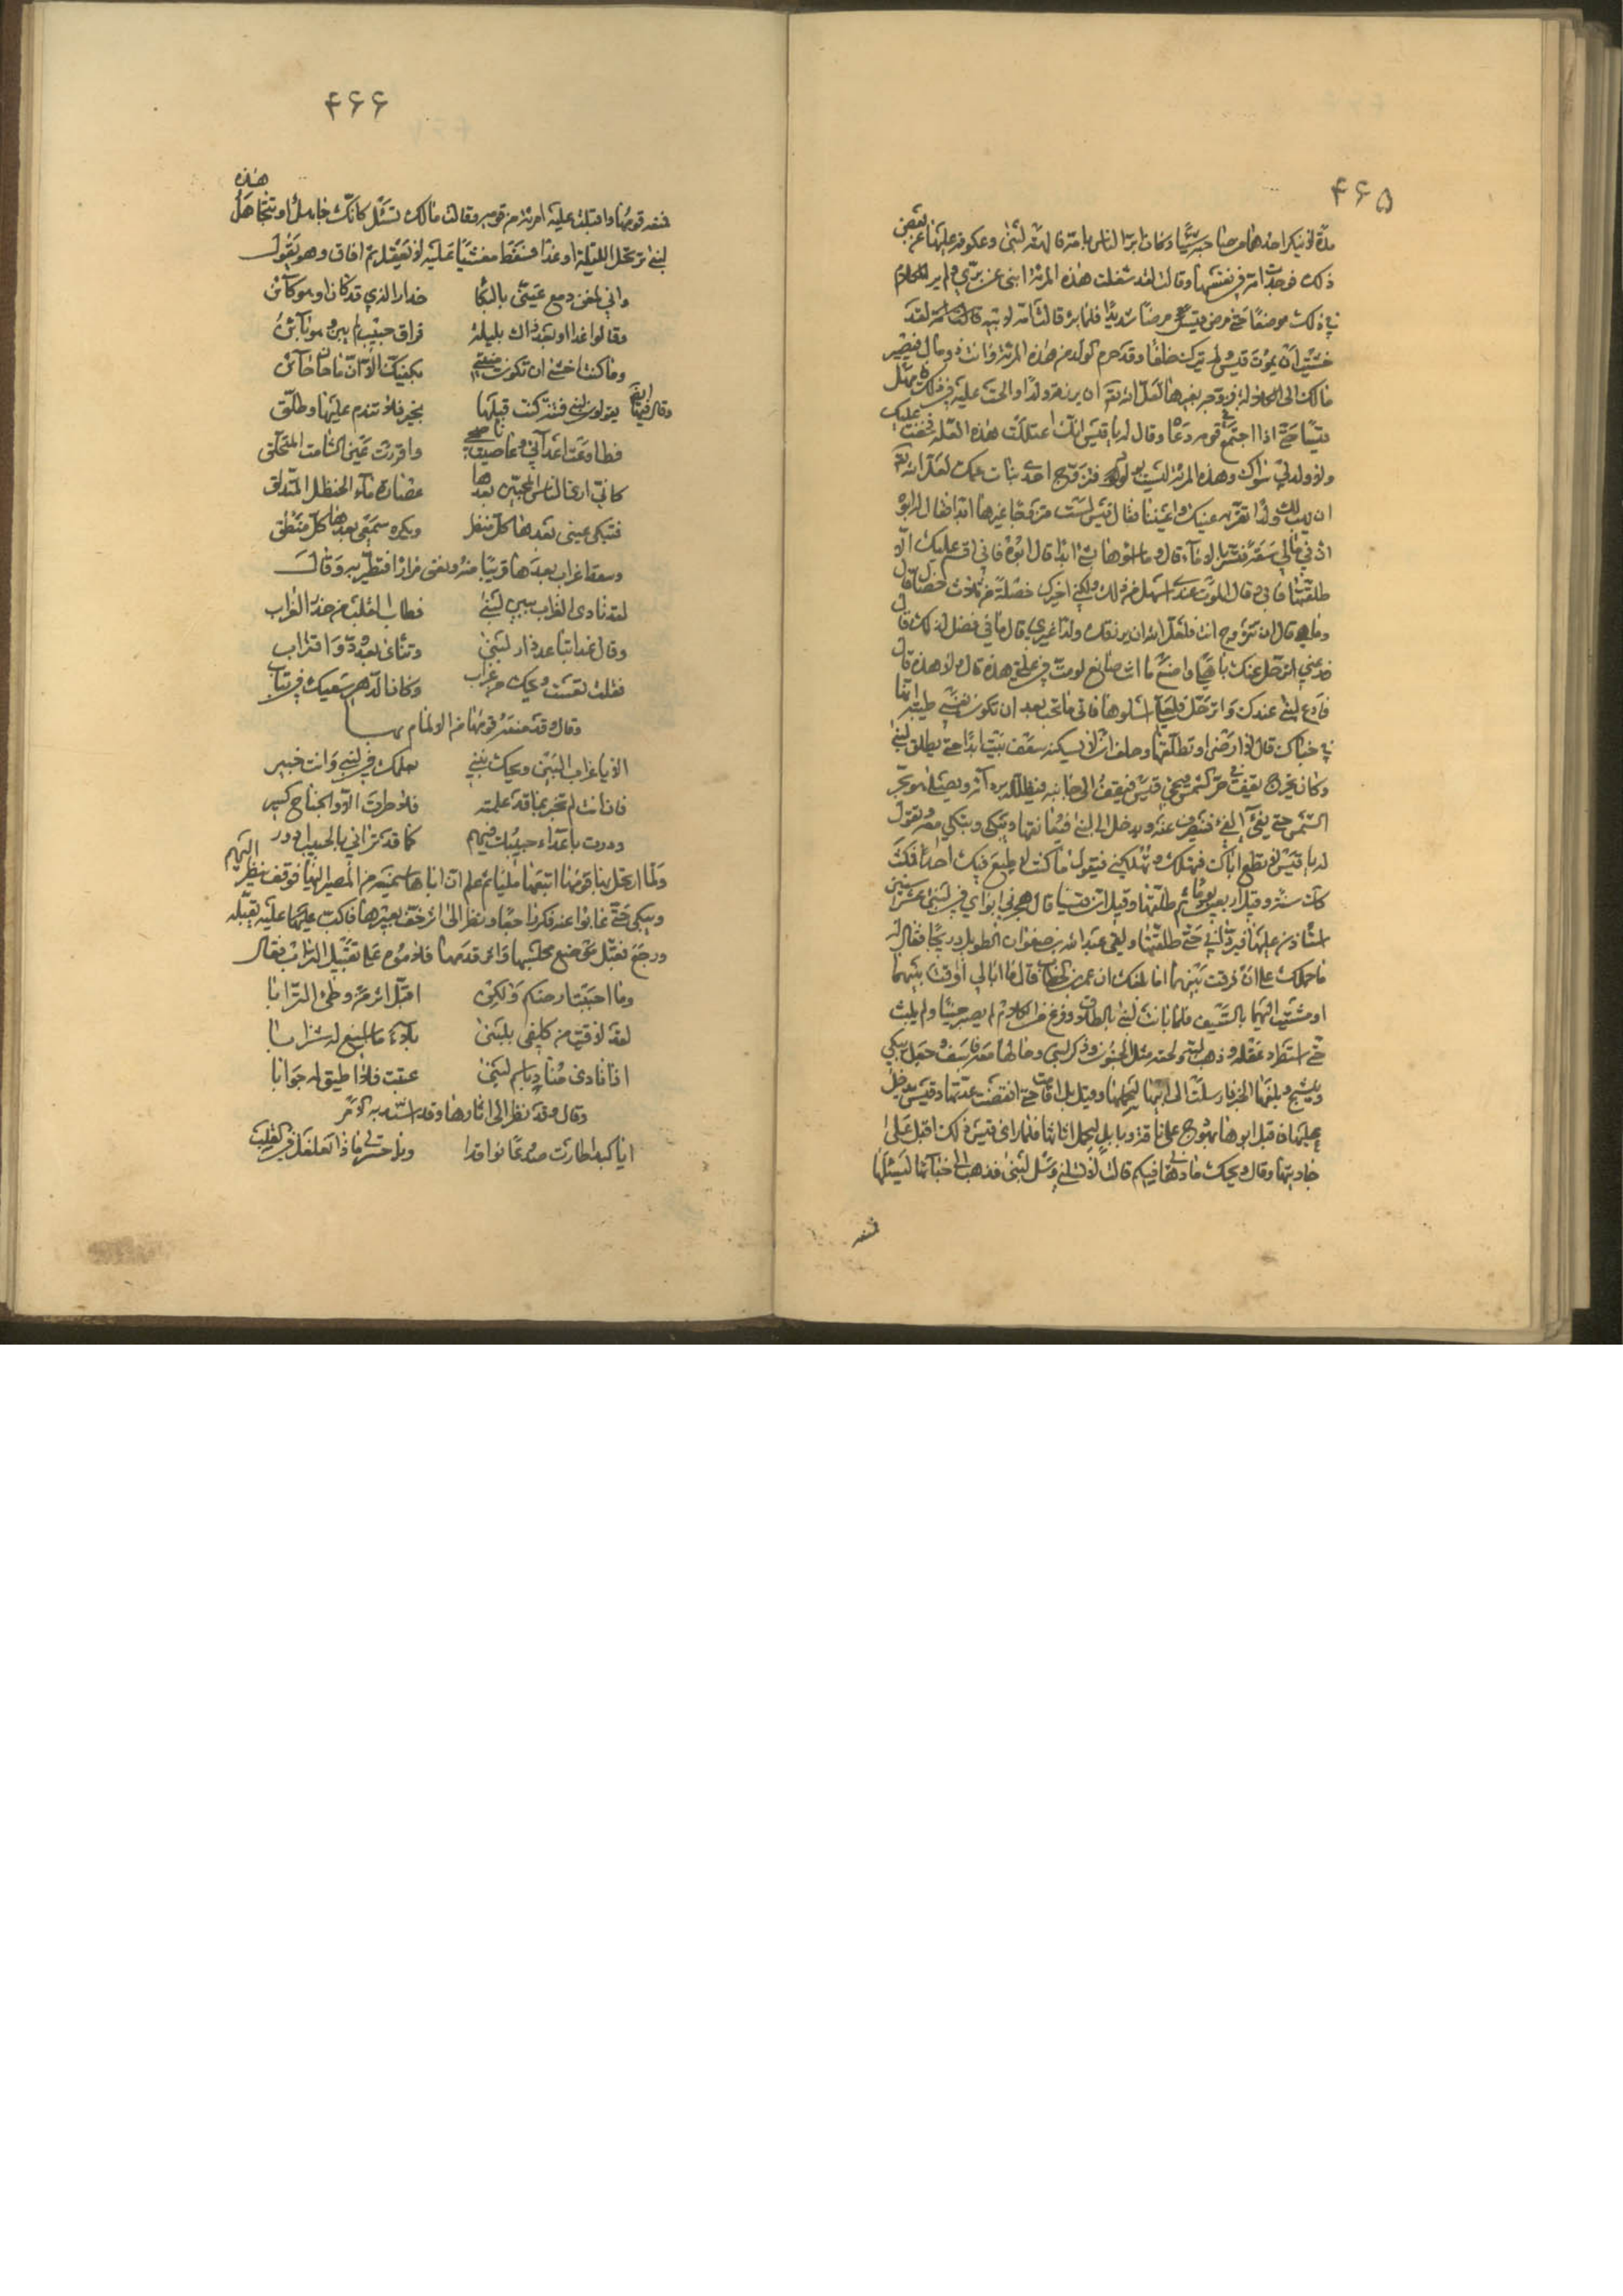 ۴۶۵
مدة لا ينكر احدهما من صاحبه شيئا وكان ابر الناس بامه فالهته لبنى وعكوفه عليها عن بعض
ذلك فوجدت امه في نفسها وقالت لقد شغلت هذه المرئة ابني عن بري ولم ير للكلام
في ذلك موضعا حتى مرض قيس مرضا شديدا فلما برئ قالت امه لابيه لقد
خشيت ان يموت قيس ولم يترك خلفا وقد حرم الولد من هذه المرئة وانت ذو مال فيصير
مالك الى الكلالة فزوجه بغيرها لعل الله ان يرزقه ولدا والحت عليه في ذلك فامهل
قيسا حتى اذا اجتمع قومه دعاه وقال له يا قيس انك اعتللت هذه العلة فخفت عليك
ولا ولد لي سواك وهذه المرئة ليست بولود فتزوج احدى بنات عمك لعل الله
ان يهب لك ولدا تقر به عينك واعيننا فقال قيس لست متزوجا غيرها ابدا فقال ابوه
ان في مالي سعة فتسر بالاماء قال ولا اسوها بشئ ابدا قال ابوه فاني اقسم عليك الا
طلقتها فابى وقال الموت عندي اسهل من ذلك ولكني اخيرك خصلة من ثلاث خصال قال
وما هي قال ان تتزوج انت فلعل الله ان يرزقك ولدا غيري قال ما في فضل لذلك قال
فدعني ارتحل عنك باهلي واصنع ما انت صانع لو مت في علتي هذه قال ولا هذه قال
فادع لبنى عندك وارتحل فلعلي اسلوها فاني ما تحب بعد ان تكون نفسي طيبة انها
في خيالك قال لا ارضى او تطلقها وحلف ان لا يسكنه سقف بيت ابدا حتى يطلق لبنى
وكان يخرج فيقف في حر الشمس ويجئ قيس فيقف الى جانبه فيظلله بردائه ويصلى هو بحر
الشمس حتى يفئ الفئ فينصرف عنه ويدخل الى لبنى فيعانقها ويبكي وتبكي معه وتقول
له يا قيس لا تطع اباك فتهلك وتهلكني فيقول ما كنت لاطيع فيك احدا فمكث
كذلك سنة وقيل اربعين يوما ثم طلقها وقيل ان قيسا قال هجرني ابواي في لبنى عشر سنين
استأذن عليهما فيرداني حتى طلقتها ولقى عبد الله بن صفوان الطويل دريحا فقال له
ما حملك على ان فرقت بينهما اما بلغك ان عمر بن الخطاب قال ما ابالي افرقت بينهما
او مشيت اليهما بالسيف فلما بانت لبنى بالطلاق وفرغ من الكلام لم يصبر حينا ولم يلبث
حتى استطار عقله وذهب لبه ولحقه مثل الجنون وذكر لبنى وحالها معه فاسف وجعل يبكي
وينشج وبلغها الخبر فارسلت الى ابيها ليحملها وقيل بل اقامت حتى انقضت عدتها وقيس يدخل
عليها فاقبل ابوها بهودج على ناقة وبابل ليحمل اثاثها فلما راى قيس ذلك اقبل على
جاريتها وقال ويحك ما دهاني فيكم قالت لا تسئلني وسل لبنى فذهب الى خبائها ليسئلها
فمنعه
۴۶۶
فمنعه قومها واقبلت عليه امرئة من قومه وقالت مالك تسئل كانك جاهل او تتجاهل هذه
لبنى ترتحل الليلة او غدا فسقط مغشيا عليه لا يعقل ثم افاق وهو يقول
واني لمفن دمع عينى بالبكا حذار الذي قد كان او هو كائن
وقالوا غدا او بعد ذاك بليلة فراق حبيب لم يبن وهو بائن
وما كنت اخشى ان تكون منيتي بكفيك الا ان ما حان حائن
وقال فيها ايضا يقولون لبنى فتنة كنت قبلها بخير فلا تندم عليها وطلق
فطاوعت اعدائي وعاصيت ناصحي واقررت عين الشامت المتخلق
كاني ارى الناس المحبين بعدها عصارة ماء الحنظل المتفلق
فتنكر عينى بعدها كل منظر ويكره سمعي بعدها كل منطق
وسقط غراب بعدها قريبا منه ونعق مرارا فتطير به وقال
لقد نادى الغراب ببين لبنى فطار القلب من حذر الغراب
وقال غدا تباعد دار لبنى وتنأى بعد ود واقتراب
فقلت تعست ويحك من غراب وكان الدهر سعيك في تباب
وقال وقد منعه قومها من الالمام بها
الا يا غراب البين ويحك نبني بعلمك في لبنى وانت خبير
فان انت لم تخبر بما قد علمته فلا طرت الا والجناح كسير
ودرت باعداء حبيبك فيهم كما قد تراني بالحبيب ادور
ولما ارتحل بها قومها اتبعها مليا ثم علم ان اباها سيمنعه من المصير اليها فوقف ينظر اليهم
ويبكي حتى غابوا عنه فكر راجعا ونظر الى اثر خف بعيرها فاكب عليه يقبله
ورجع يقبل موضع مجلسها واثر قدمها فلاموه على تقبيل التراب فقال
وما احببت ارضكم ولكن اقبل اثر من وطئ الترابا
لقد لاقيت من كلفي بلبنى بلاء ما اسيغ له شرابا
اذا نادى مناد باسم لبنى عييت فلا اطيق له جوابا
وقال وقد نظر الى اثارها وقد اشتد به الامر
ايا كبدا طارت صدوعا نوافذا ويا حسرتى ماذا تغلغل في القلب